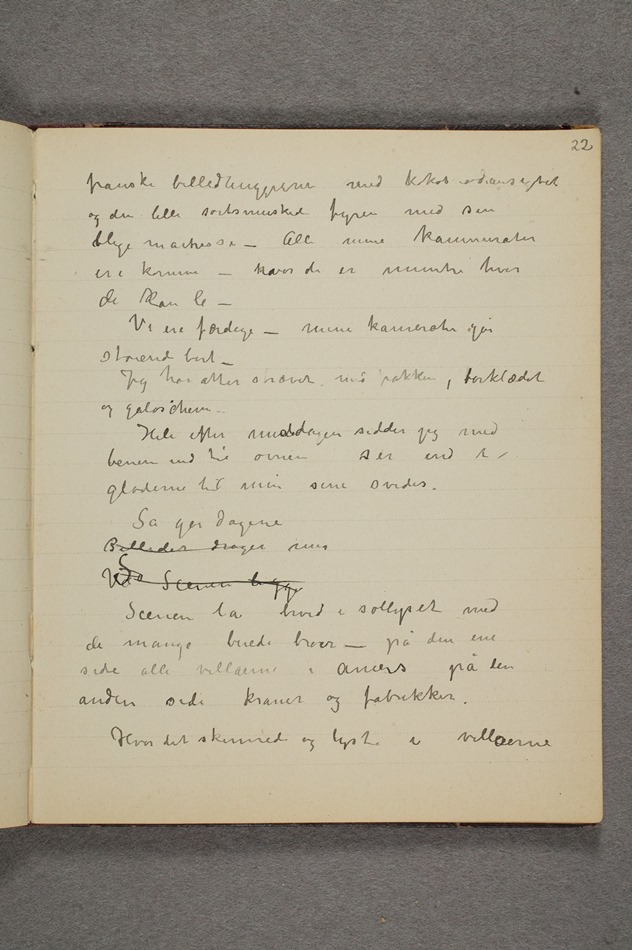 22
franske billedhuggerne med
og den lille sortsmuskede fyren med sin
blege maitresse — Alle mine kammerater
ere komne — hvor de er muntre hvor
de kan le —
Vi ere færdige — mine kamerater går
støiend bort —
Jeg har atter på frakken, tørklædet
og galoschene —
Hele efter middagen sidder jeg med
benene ind til ovnen ser ind i
gløderne til mine sene svides.
Så går dagene
Billeder drager mig
Så Scenen ligge
Scenen lå hvid i sollyset med
de mange brede broer — på den ene
side alle villaerne i på den
anden side kraner og fabrikker.
Hvor det skinnede og lyste i villaerne